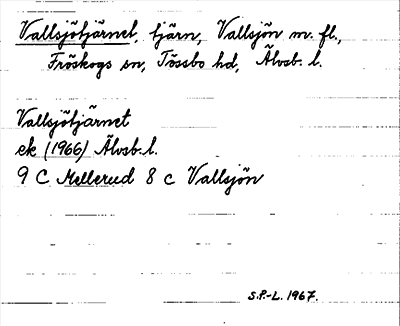 Vallsjötjärnet, tjärn, Vallsjön m. fl.,
Fröskogs sn, Tössbo hd, Älvsb. l.
Vallsjötjärnet
ek (1966) Älvsb. l.
9 C Mellerud 8 c Vallsjön
S.P.-L. 1967.